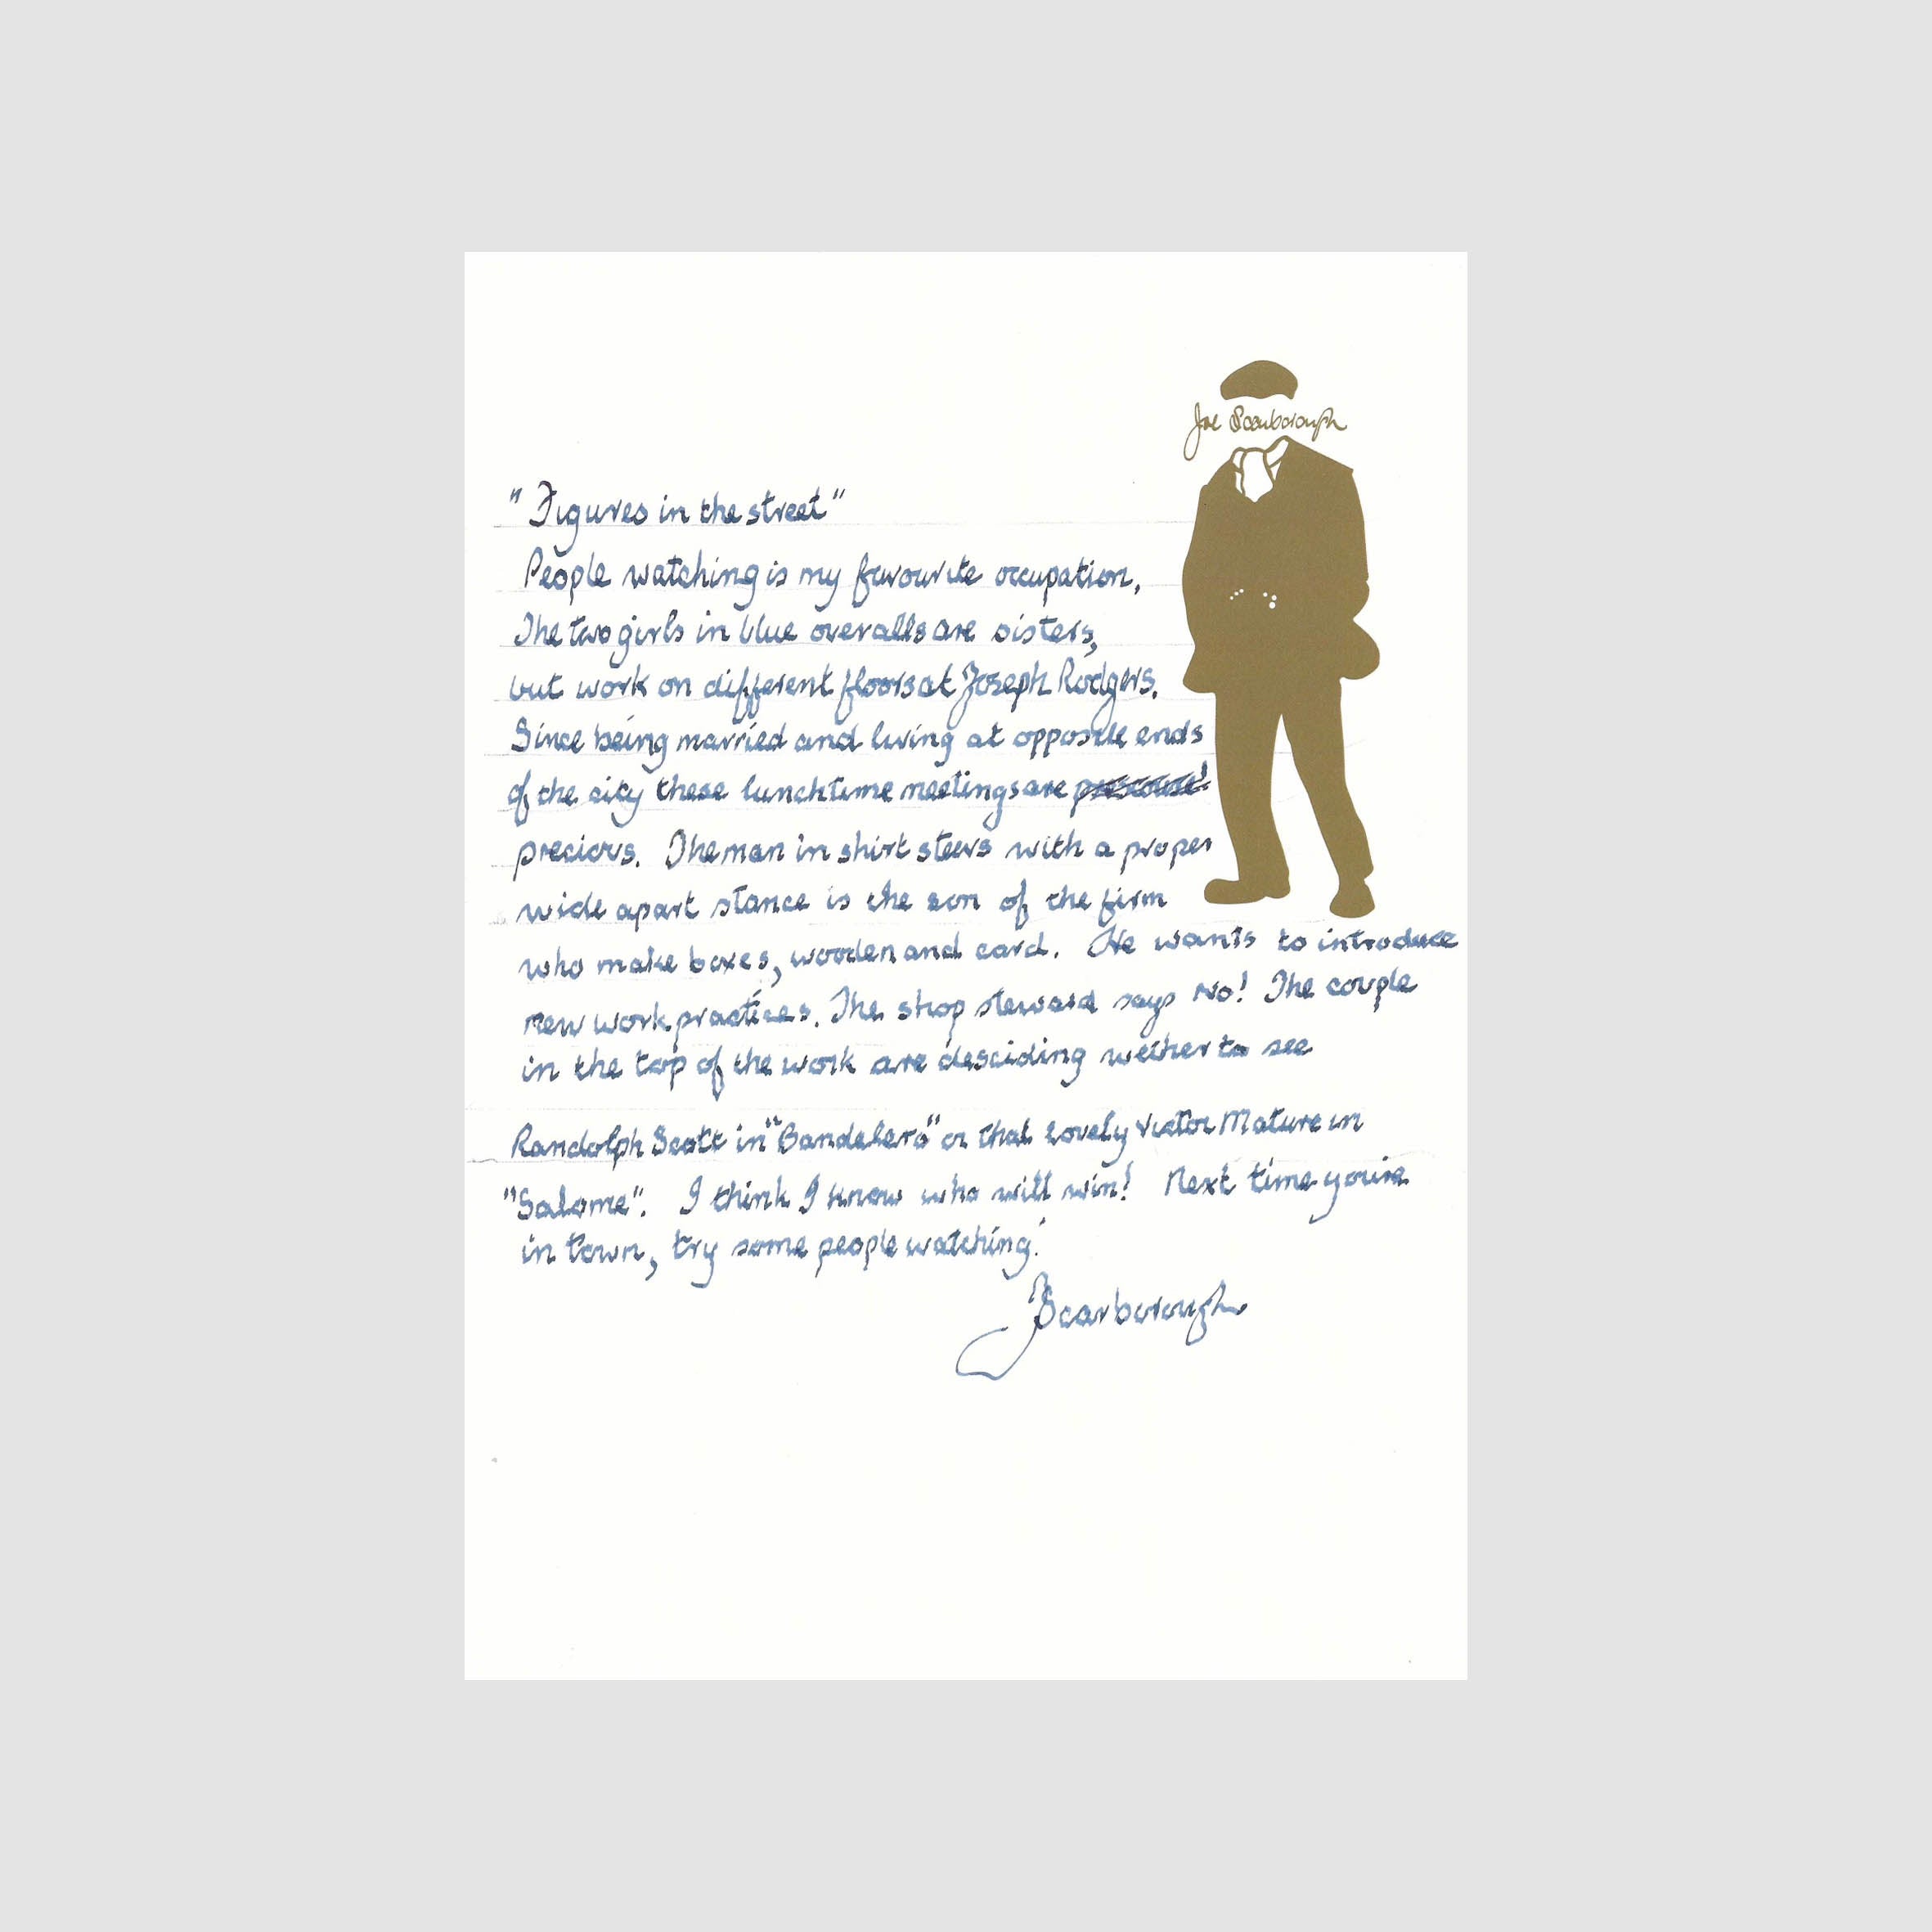 Joe Scarborough
"Figures in the street"
People watching is my favourite occupation,
The two girls in blue overalls are sisters,
but work on different floors at Joseph Rodgers.
Since being married and living at opposite ends
of the city these lunchtime meetings are
precious. The man in shirt steevs with a proper
wide apart stance is the son of the firm
who make boxes, wooden and card. He wants to introduce
new work practices. The shop steward says No! The couple
in the top of the work are desciding wether to see
Randolph Scott in "Bandelero" or that lovely Victor Mature in
"Salome". I think I know who will win! Next time you're
in town, try some people watching!
JScarborough